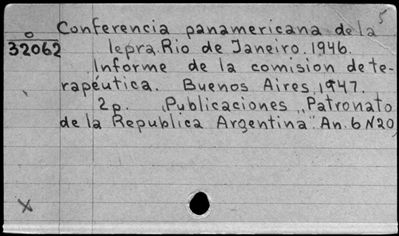 5
o Conferencia panamericana de la
32062 lepra. Rio de Janeiro. 1946.
Informe de la comision de te-
rapéutica. Buenos Aires, 1947.
2 p. "Publicaciones "Patronato
de la Republica Argentina". An. 6 N20
X